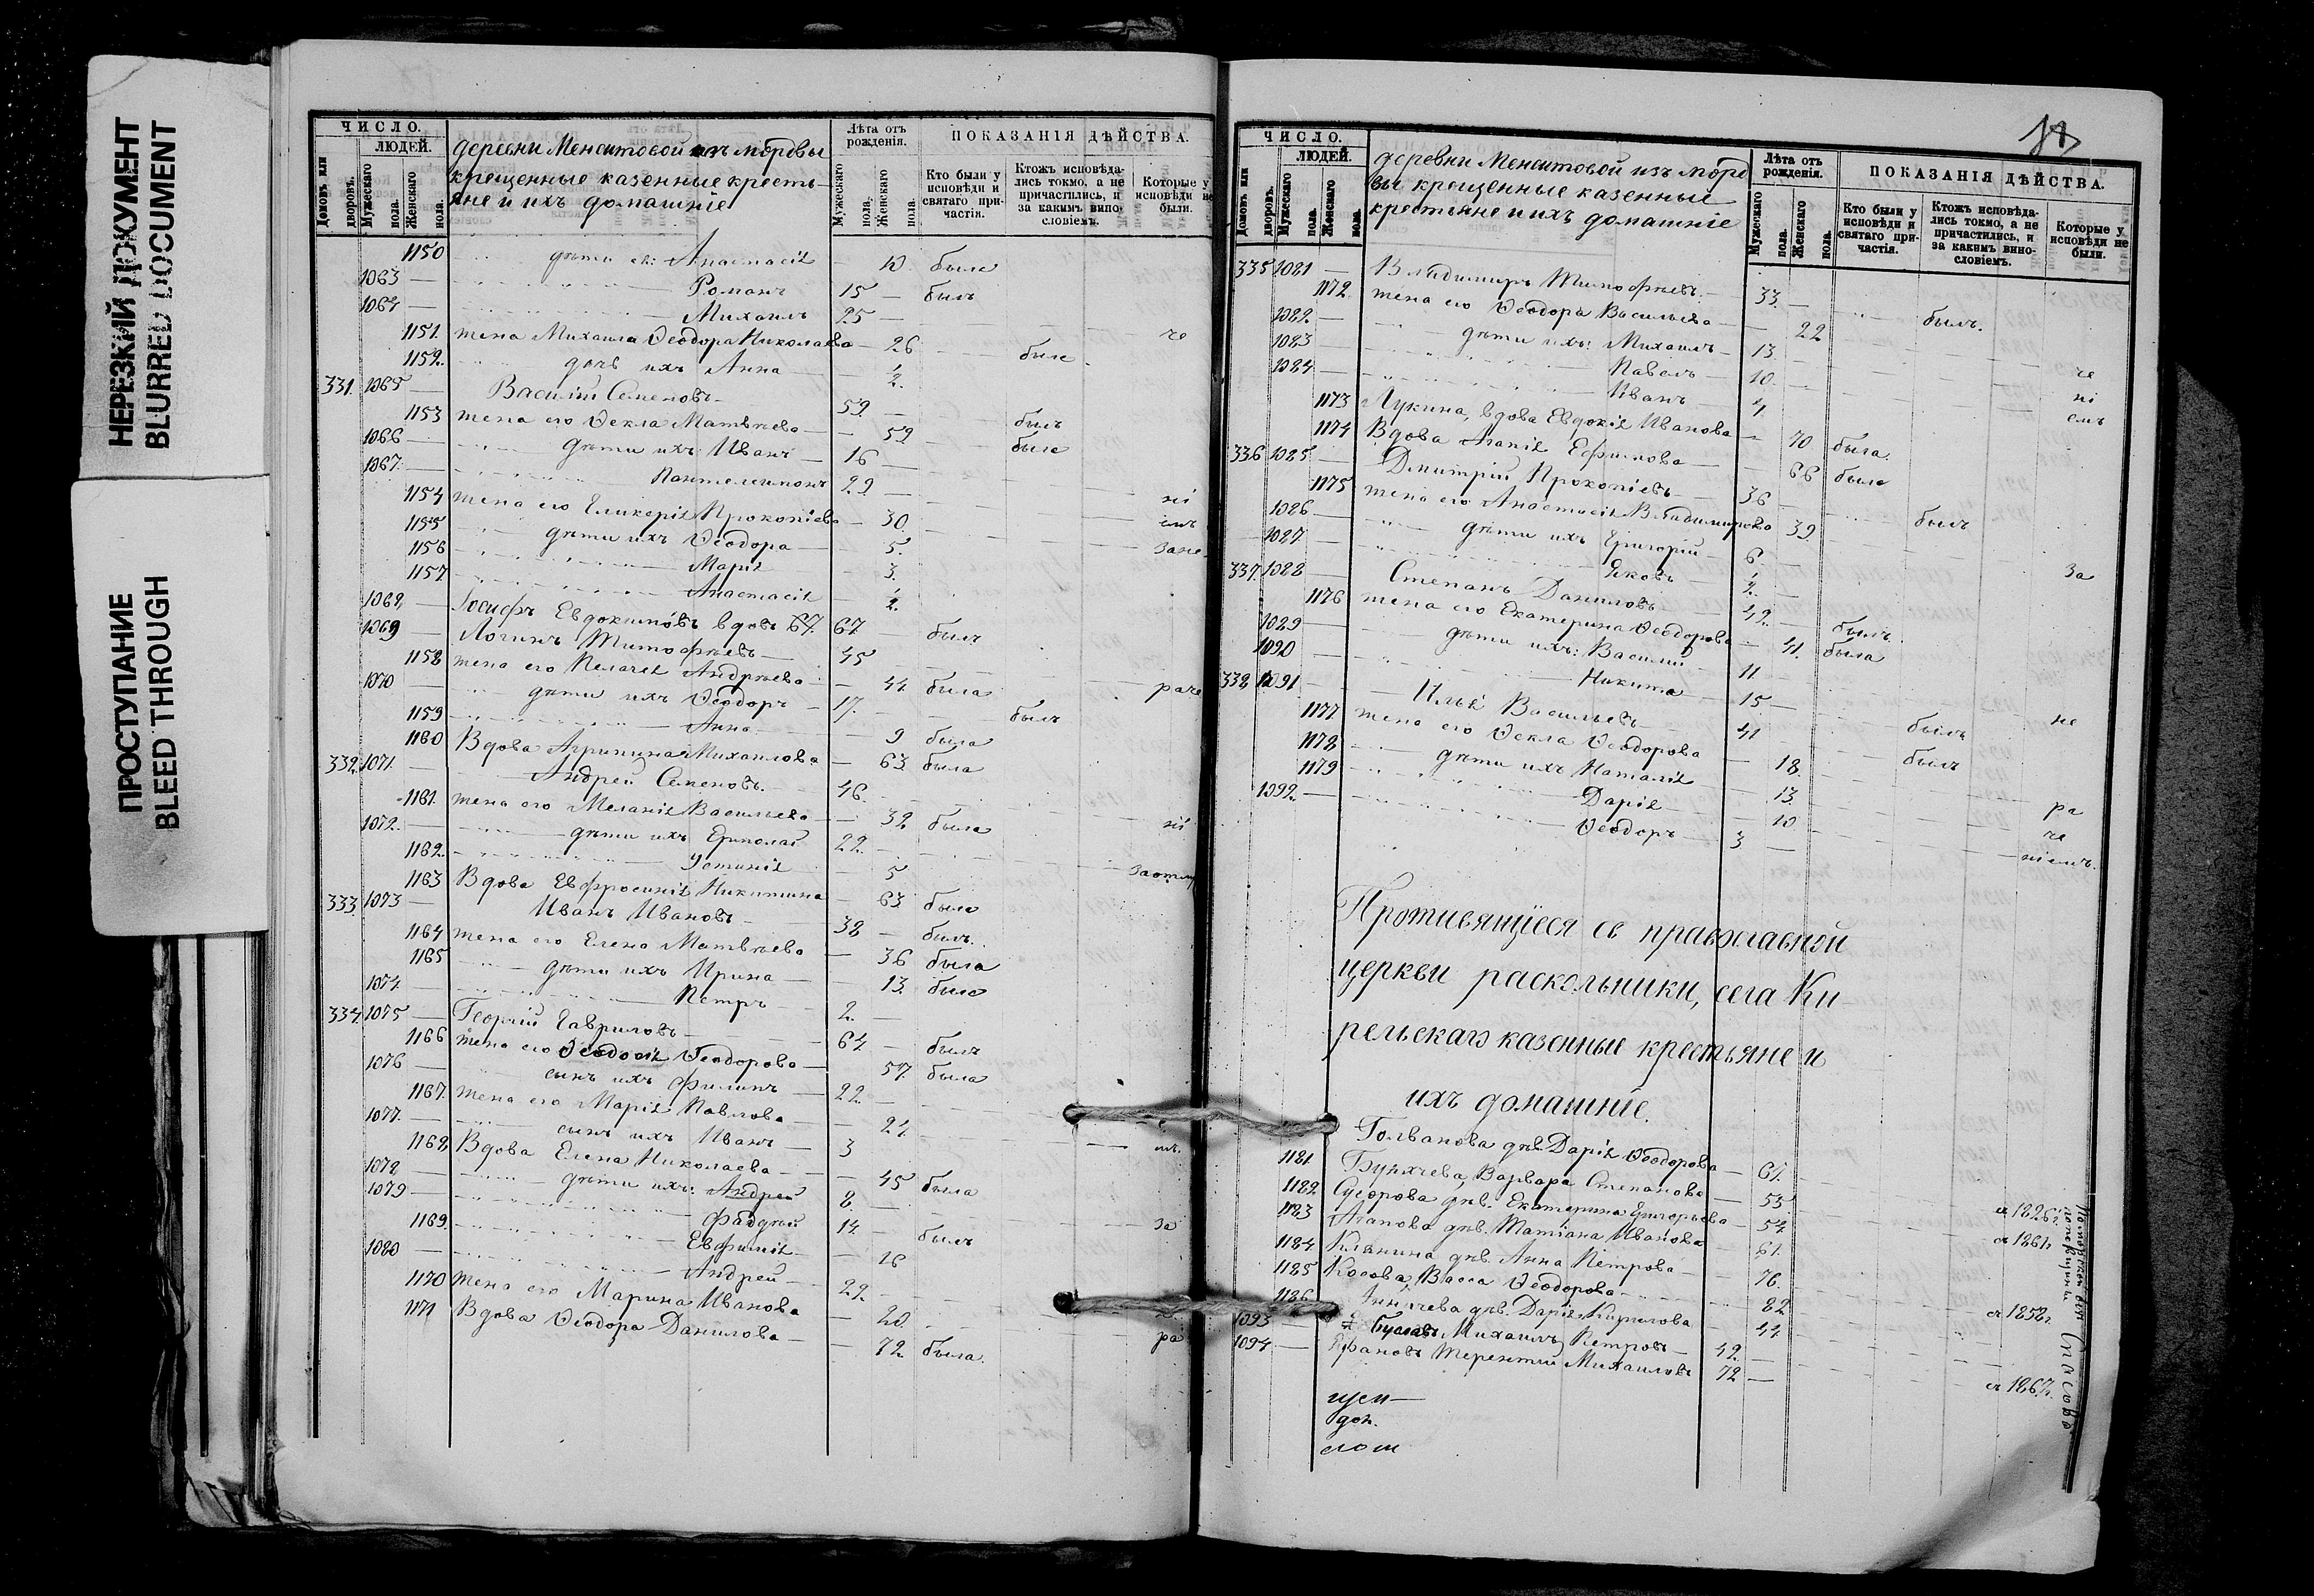 НЕРЕЗКИЙ ДОКУМЕНТ
BLURRED DOCUMENT
ПРОСТУПАНИЕ
BLEED THROUGH
ЧИСЛО.
ЛЮДЕЙ.
Домовъ или дворовъ.
Мужескаго пола.
Женскаго пола.
деревни Менситовой изъ мордвы
крещенные казенные кресть-
яне и ихъ домашніе
Лѣта отъ рожденія.
Мужескаго пола.
Женскаго пола.
ПОКАЗАНІЯ ДѢЙСТВА.
Кто были у исповѣди и святаго при-частія.
Ктожъ исповѣда-лись токмо, а не причастились, и за какимъ вино-словіемъ.
Которые у исповѣди не были.
1150 дѣти ея: Анастасія 10 была
1063 Романъ 15 былъ
1064 Михаилъ 25
1151. жена Михаила Ѳеодора Николаева 26 че
1152. дочь ихъ Анна ½. была
331. 1065 Василій Семеновъ 59
1153 жена его Ѳекла Матвѣева 59 былъ
1066 дѣти ихъ: Иванъ 16 была
1067. Пантелеимонъ 29
1154 жена его Гликерія Прокопіева 30. ні
1155 дѣти ихъ Ѳеодора 5. емъ
1156 Марія 3.
1157 Анастасія ½.
1068 Іосифъ Евдокимовъ вдовъ 67. 67. былъ
1069 Логинъ Тимофѣевъ 45
1158 жена его Пелагея Андрѣева 44 была
1070 дѣти ихъ Ѳеодоръ 17. былъ
1159 Анна 9 была
1160 Вдова Агрипина Михаилова 63 была
332. 1071. Андрей Семеновъ. 46.
1161. жена его Меланія Васильева 32 была ні
1072. дѣти ихъ Ермолай 22.
1162. Устинія 5
1163 Вдова Евфросинія Никитина 63 была
333 1073 Иванъ Ивановъ 38 былъ.
1164 жена его Елена Матвѣева 36 была
1165 дѣти ихъ Ирина 13. была
1074 Петръ 2.
334. 1075 Георгій Гавриловъ 64 былъ
1166 жена его Ѳеодосія Ѳеодорова 57 была
1076 сынъ ихъ Филипъ 22.
1167. жена его Марія Павлова 24
1077. сынъ ихъ Иванъ 3
1168 Вдова Елена Николаева 45 была
1078 дѣти ихъ: Андрей 8.
1079 Фаддѣй 14 былъ за
1169. Евфимія 16
1080 Андрей 22.
1170 жена его Марина Иванова 20.
1171 Вдова Ѳеодора Данилова 72 была. ра
ЧИСЛО.
ЛЮДЕЙ.
Домовъ или дворовъ.
Мужескаго пола.
Женскаго пола.
деревни Менситовой изъ мордо
вы крещенные казенные
крестьяне и ихъ домашніе
Лѣта отъ рожденія.
Мужескаго пола.
Женскаго пола.
ПОКАЗАНІЯ ДѢЙСТВА.
Кто были у исповѣди и святаго при-частія.
Ктожъ исповѣда-лись токмо, а не причастились, и за какимъ вино-словіемъ.
Которые у исповѣди не были.
335 1081 Владимиръ Тимофѣевъ. 33.
1172. жена его Ѳеодора Васильева 22 былъ.
1082. дѣти ихъ: Михаилъ 13.
1083 Павелъ 10. че
1084 Иванъ 4 ні
1173 Лукина, вдова Евдокія Иванова 70 была. емъ
1174 Вдова Агапія Ефимова 66 была
336 1085 Дмитрій Прокопіевъ 36
1175 жена его Анастасія Владимирова 39. былъ
1086 дѣти ихъ Григорій 6.
1087. Яковъ ½. за
337. 1088 Степанъ Даниловъ 42. былъ.
1176 жена его Екатерина Ѳеодорова 41. была
1089 дѣти ихъ: Василій 11
1090 Никита 15 не
338 1091 Илья Васильевъ 41 былъ
1177 жена его Ѳекла Ѳеодорова 18. былъ
1178 дѣти ихъ Наталія 13. ра
1179 Дарія 10 че
1092. Ѳеодоръ 3 ніемъ.
Противящіеся св православной
церкви раскольники, села Ки
рельскаго казенные крестьяне и
ихъ домашніе.
Голванова дѣв Дарія Ѳеодорова 61.
1181. Варвара Степанова 53.
1182. Суворова дѣв. Екатерина Григорьева 54. съ 1826 г.
1183 Агапова дѣв. Татіана Иванова 61. съ 1861 г.
1184 Клянина дѣв. Анна Петрова 76.
1185 Косова, Васса Ѳеодорова 82. съ 1858 г.
1186 дѣв. Дарія Кирилова 44
1093 Михаилъ Петровъ 42.
1094 Терентій Михаиловъ 72 съ 1867 г.